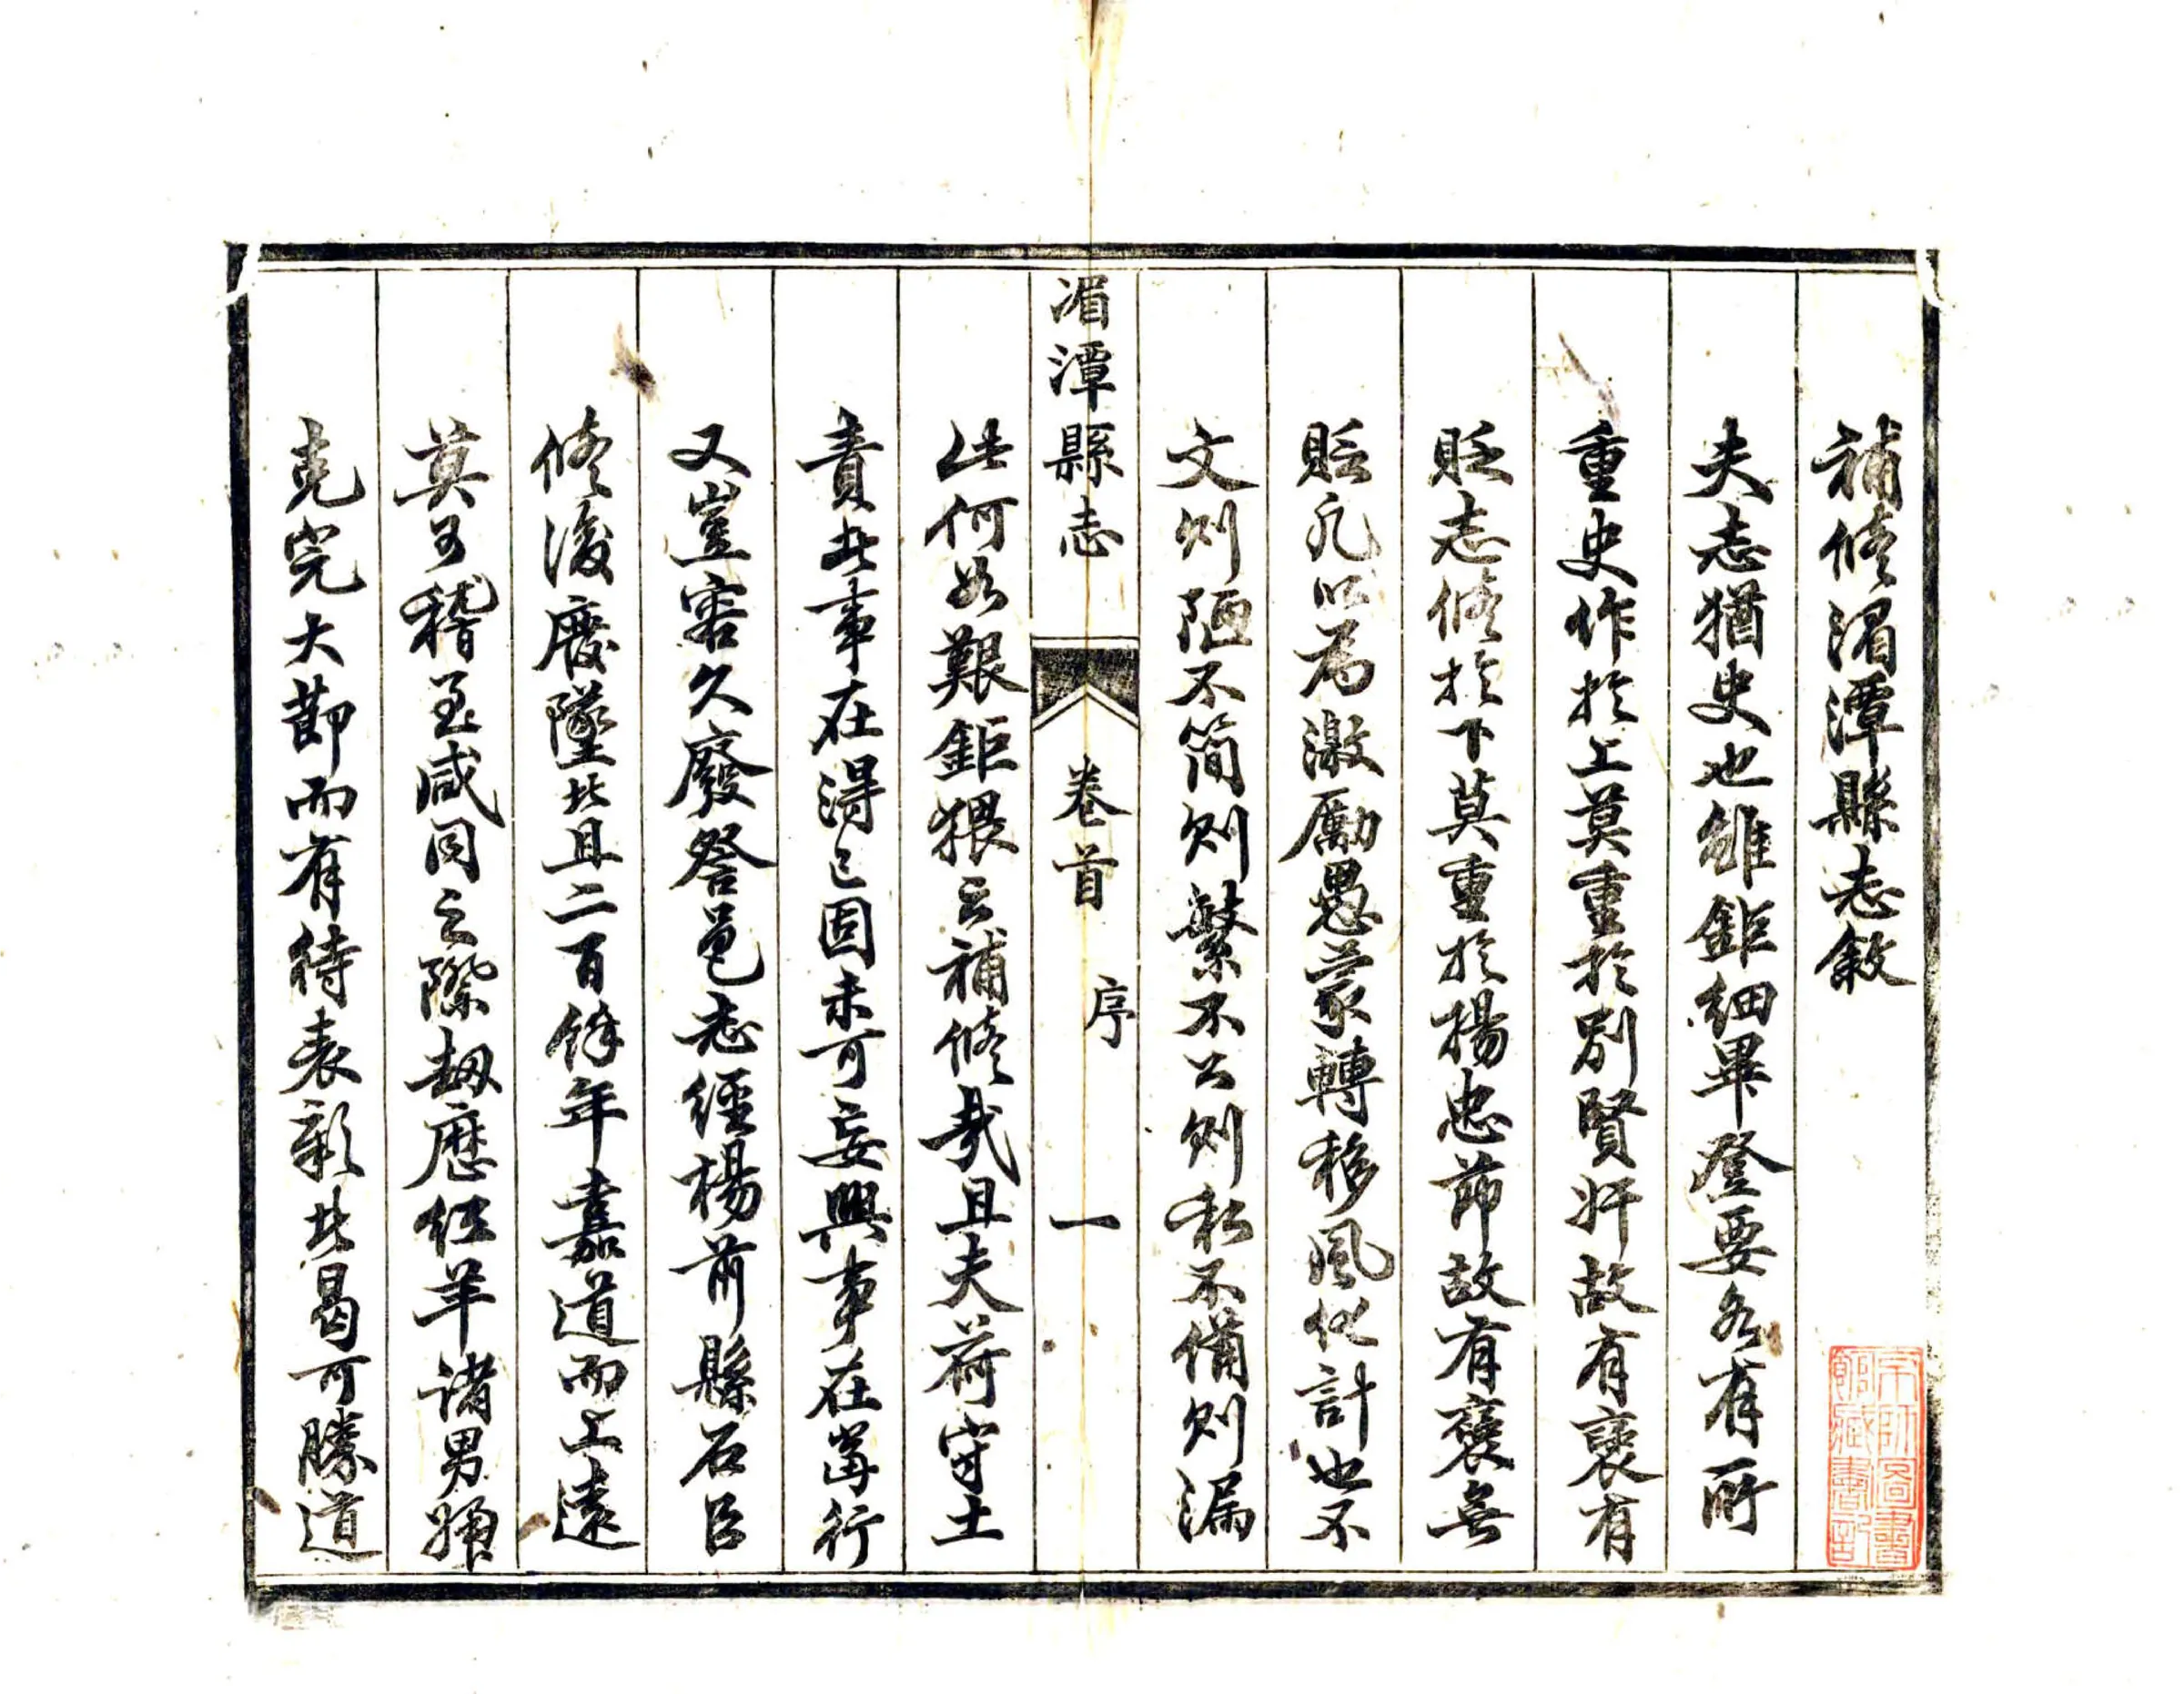 補修湄潭縣志敘
夫志猶史也雖鉅細畢登要各有所
重史作於上莫重於別賢奸故有褒有
貶志修於下莫重於揚忠節故有褒無
貶凡以為激勵愚蒙轉移風化計也不
文則陋不簡則繁不公則私不備則漏
湄潭縣志
卷首
序
一
此何如艱鉅猥云補修哉且夫荷守土
責此事在得已固未可妄興事在當行
又豈容久廢咎邑志經楊前縣石臣
修後廢墜此且二百餘年嘉道而上遠
莫可稽至咸同之際劫歷紅羊諸男婦
克完大節而有待表彰此曷可勝道